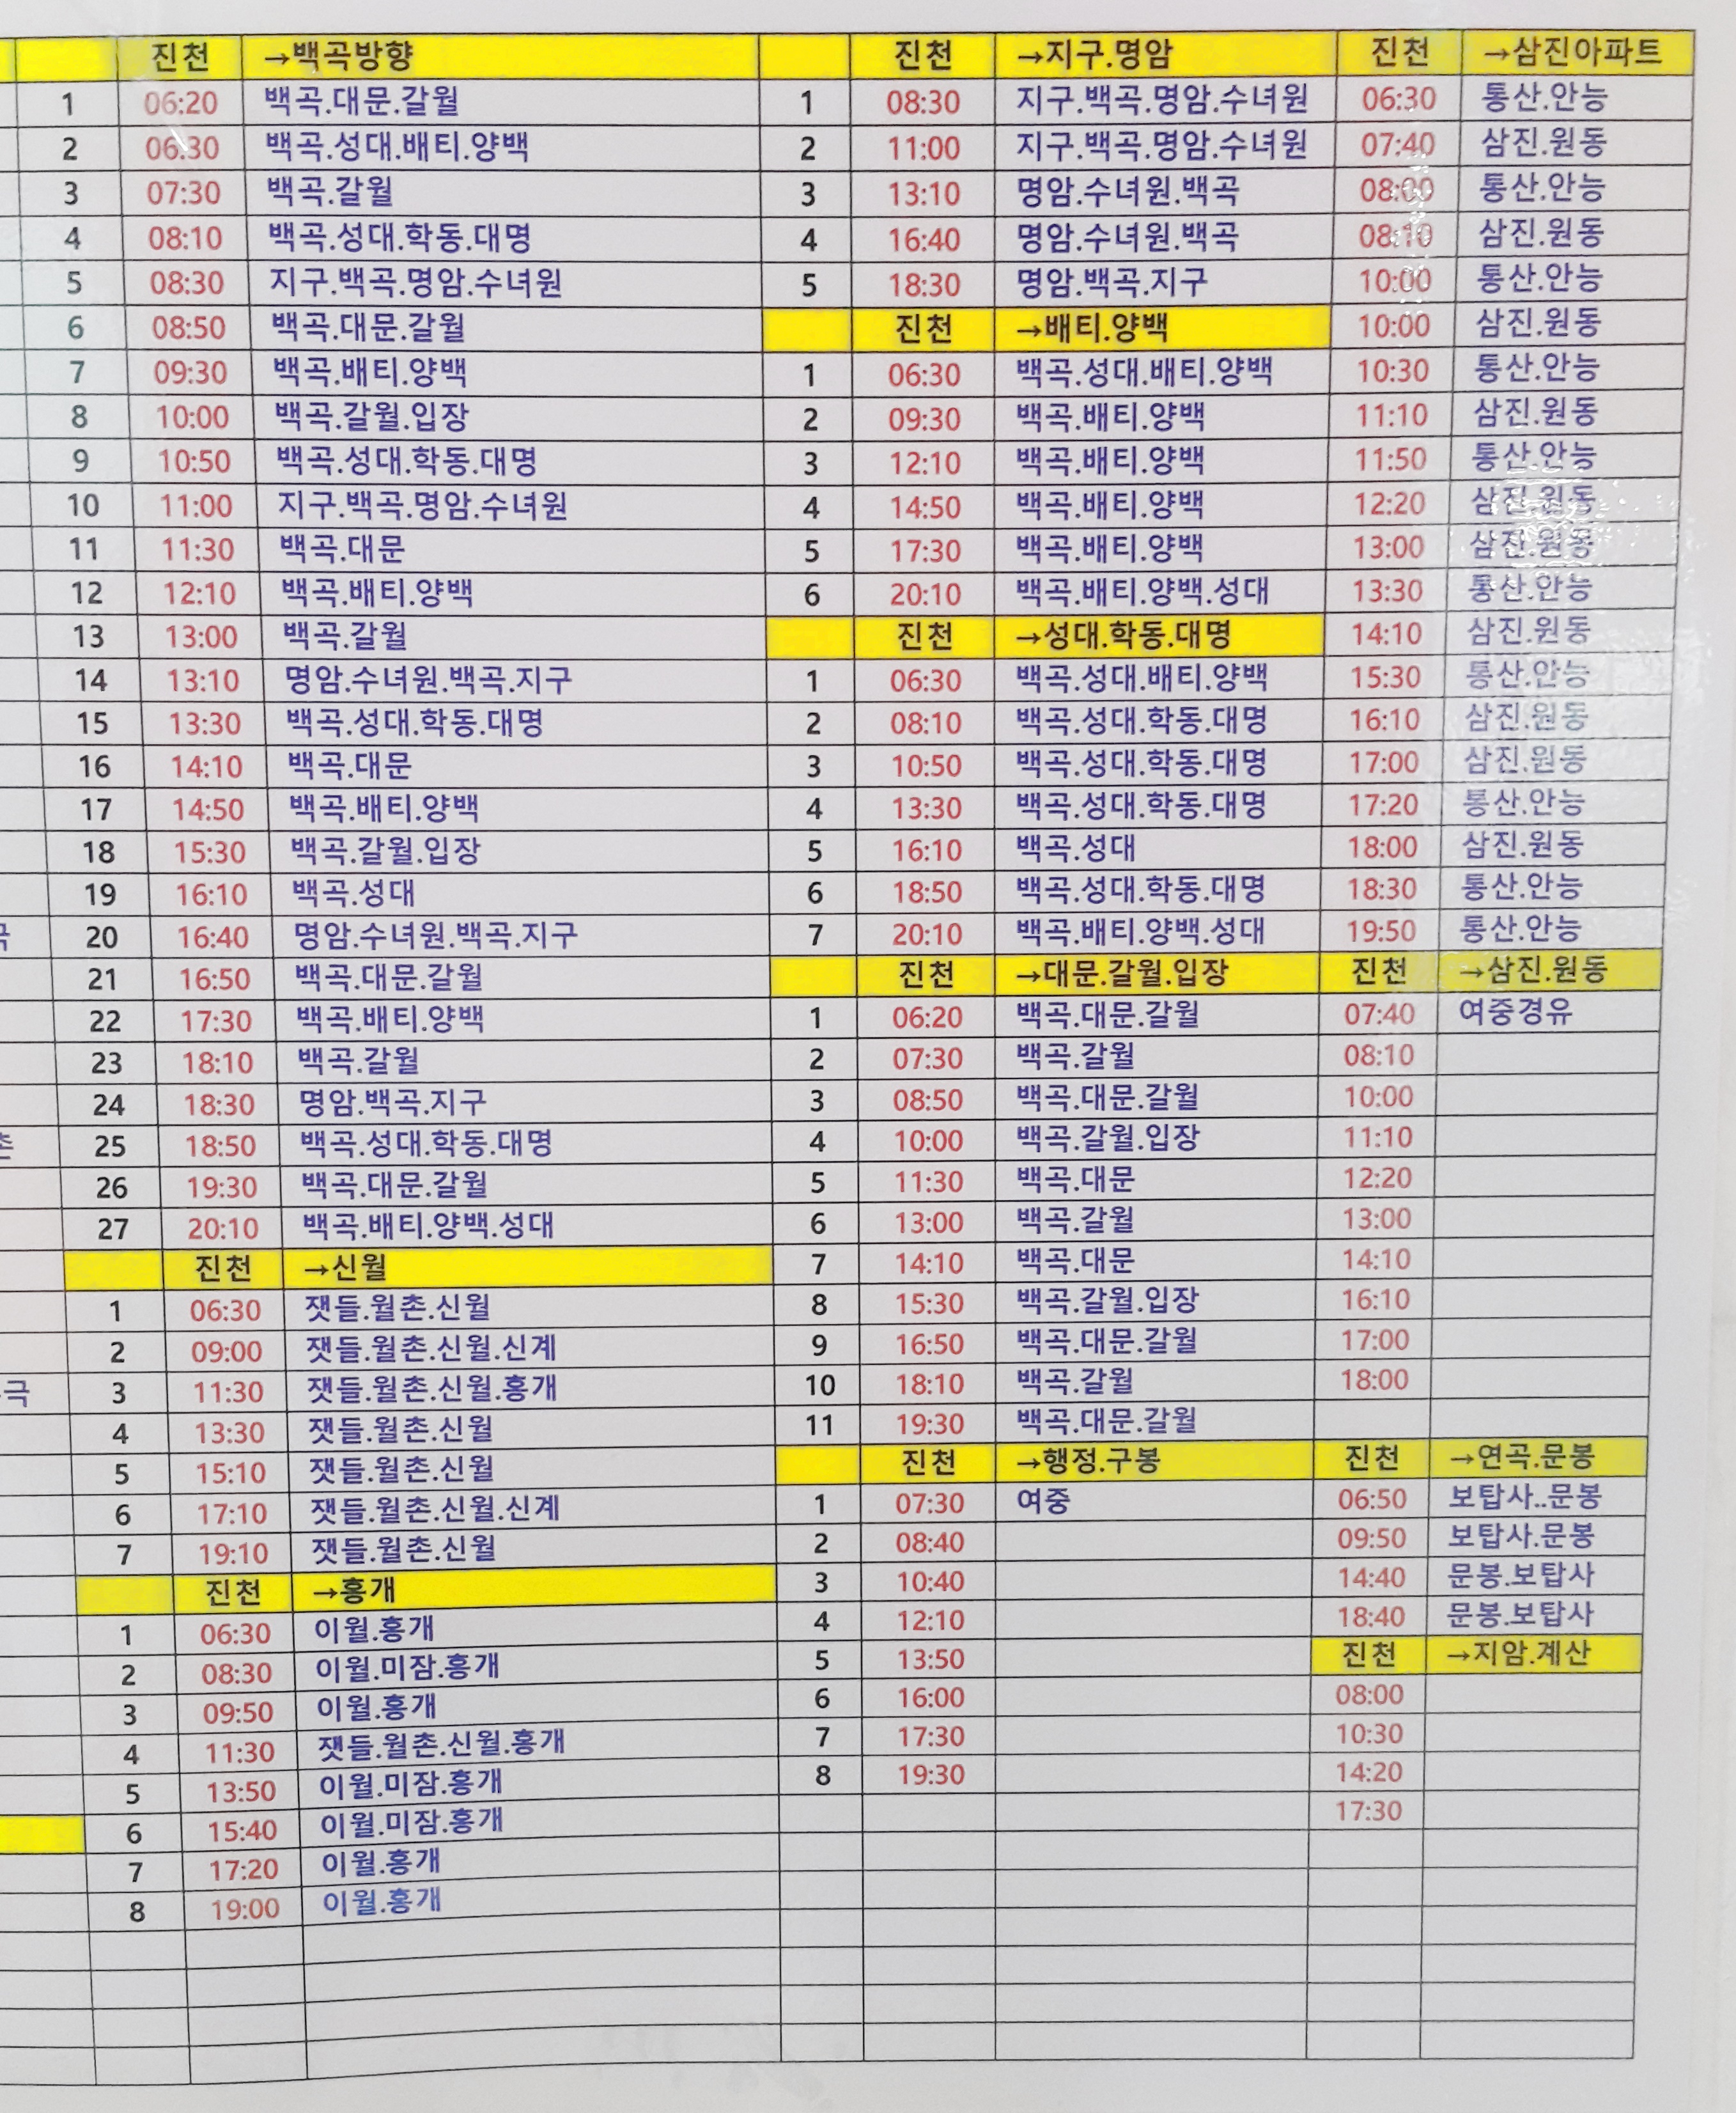 진천 →백곡방향
1 06:20 백곡.대문.갈월
2 06:30 백곡.성대.배티.양백
3 07:30 백곡.갈월
4 08:10 백곡.성대.학동.대명
5 08:30 지구.백곡.명암.수녀원
6 08:50 백곡.대문.갈월
7 09:30 백곡.배티.양백
8 10:00 백곡.갈월.입장
9 10:50 백곡.성대.학동.대명
10 11:00 지구.백곡.명암.수녀원
11 11:30 백곡.대문
12 12:10 백곡.배티.양백
13 13:00 백곡.갈월
14 13:10 명암.수녀원.백곡.지구
15 13:30 백곡.성대.학동.대명
16 14:10 백곡.대문
17 14:50 백곡.배티.양백
18 15:30 백곡.갈월.입장
19 16:10 백곡.성대
20 16:40 명암.수녀원.백곡.지구
21 16:50 백곡.대문.갈월
22 17:30 백곡.배티.양백
23 18:10 백곡.갈월
24 18:30 명암.백곡.지구
25 18:50 백곡.성대.학동.대명
26 19:30 백곡.대문.갈월
27 20:10 백곡.배티.양백.성대
진천 →신월
1 06:30 잿들.월촌.신월
2 09:00 잿들.월촌.신월.신계
극 3 11:30 잿들.월촌.신월.홍개
4 13:30 잿들.월촌.신월
5 15:10 잿들.월촌.신월
6 17:10 잿들.월촌.신월.신계
7 19:10 잿들.월촌.신월
진천 →홍개
1 06:30 이월.홍개
2 08:30 이월.미잠.홍개
3 09:50 이월.홍개
4 11:30 잿들.월촌.신월.홍개
5 13:50 이월.미잠.홍개
6 15:40 이월.미잠.홍개
7 17:20 이월.홍개
8 19:00 이월.홍개
진천 →지구.명암
1 08:30 지구.백곡.명암.수녀원
2 11:00 지구.백곡.명암.수녀원
3 13:10 명암.수녀원.백곡
4 16:40 명암.수녀원.백곡
5 18:30 명암.백곡.지구
진천 →배티.양백
1 06:30 백곡.성대.배티.양백
2 09:30 백곡.배티.양백
3 12:10 백곡.배티.양백
4 14:50 백곡.배티.양백
5 17:30 백곡.배티.양백
6 20:10 백곡.배티.양백.성대
진천 →성대.학동.대명
1 06:30 백곡.성대.배티.양백
2 08:10 백곡.성대.학동.대명
3 10:50 백곡.성대.학동.대명
4 13:30 백곡.성대.학동.대명
5 16:10 백곡.성대
6 18:50 백곡.성대.학동.대명
7 20:10 백곡.배티.양백.성대
진천 →대문.갈월.입장
1 06:20 백곡.대문.갈월
2 07:30 백곡.갈월
3 08:50 백곡.대문.갈월
4 10:00 백곡.갈월.입장
5 11:30 백곡.대문
6 13:00 백곡.갈월
7 14:10 백곡.대문
8 15:30 백곡.갈월.입장
9 16:50 백곡.대문.갈월
10 18:10 백곡.갈월
11 19:30 백곡.대문.갈월
진천 →행정.구봉
1 07:30 여중
2 08:40
3 10:40
4 12:10
5 13:50
6 16:00
7 17:30
8 19:30
진천 →삼진아파트
06:30 통산.안능
07:40 삼진.원동
08:00 통산.안능
08:10 삼진.원동
10:00 통산.안능
10:00 삼진.원동
10:30 통산.안능
11:10 삼진.원동
11:50 통산.안능
12:20 삼진.원동
13:00 삼진.원동
13:30 통산.안능
14:10 삼진.원동
15:30 통산.안능
16:10 삼진.원동
17:00 삼진.원동
17:20 통산.안능
18:00 삼진.원동
18:30 통산.안능
19:50 통산.안능
진천 →삼진.원동
07:40 여중경유
08:10
10:00
11:10
12:20
13:00
14:10
16:10
17:00
18:00
진천 →연곡.문봉
06:50 보탑사..문봉
09:50 보탑사.문봉
14:40 문봉.보탑사
18:40 문봉.보탑사
진천 →지암.계산
08:00
10:30
14:20
17:30